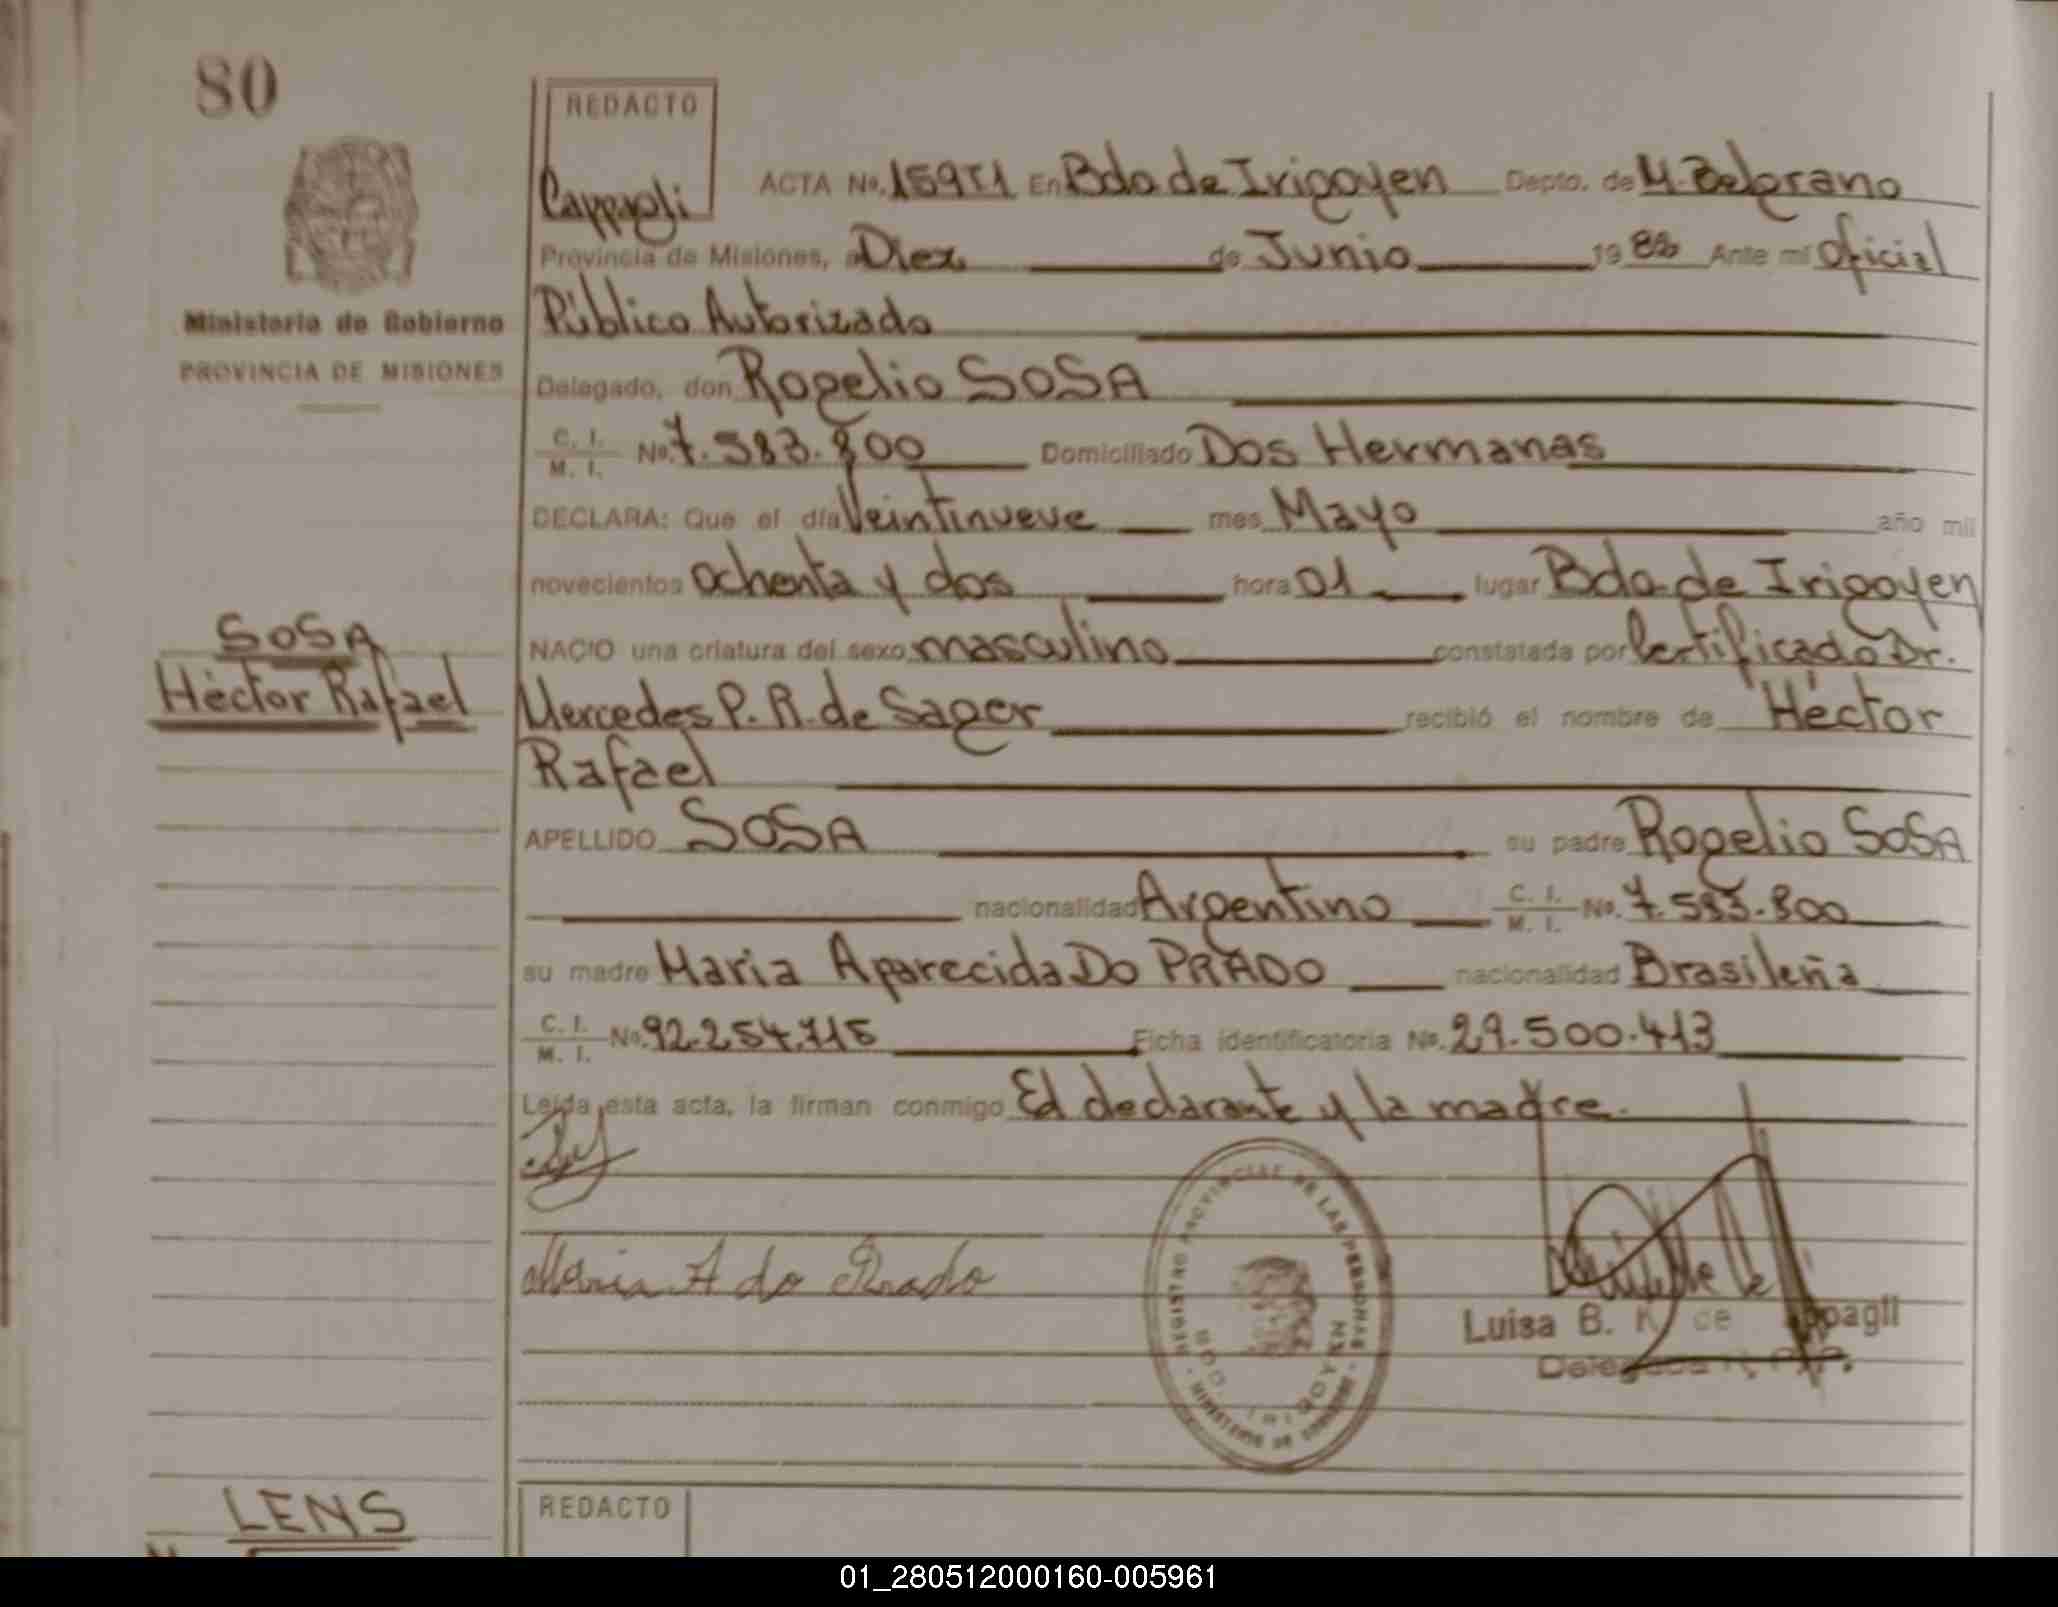 80
REDACTO
Cappagli
ACTA No. En Bdo de Irigoyen Depto. de M. Belgrano
Provincia de Misiones, a Diez de Junio 19 82 Ante mí Oficial
Público Autorizado
Ministerio de Gobierno
PROVINCIA DE MISIONES
Delegado, don Rogelio SOSA
C. I. M. I. No. 7.583.800 Domiciliado Dos Hermanas
DECLARA: Que el día Veintinueve mes Mayo año mil
novecientos ochenta y dos hora 01 lugar Bdo de Irigoyen
SOSA
Héctor Rafael
NACIO una criatura del sexo masculino constatada por Certificado Dr.
Mercedes P. R. de Sager recibió el nombre de Héctor
Rafael
APELLIDO SOSA su padre Rogelio SOSA
nacionalidad Argentino C. I. M. I. No. 7.583.800
su madre Maria Aparecida Do PRADO nacionalidad Brasileña
C. I. M. I. No. 92.254.715 Ficha identificatoria No. 29.500.413
Leída esta acta, la firman conmigo El declarante y la madre.
Maria A do Prado
REGISTRO PROVINCIAL DE LAS PERSONAS
MINISTERIO DE GOBIERNO
BDO. IRIGOYEN
Luisa B. K de
LENS
REDACTO
01_280512000160-005961